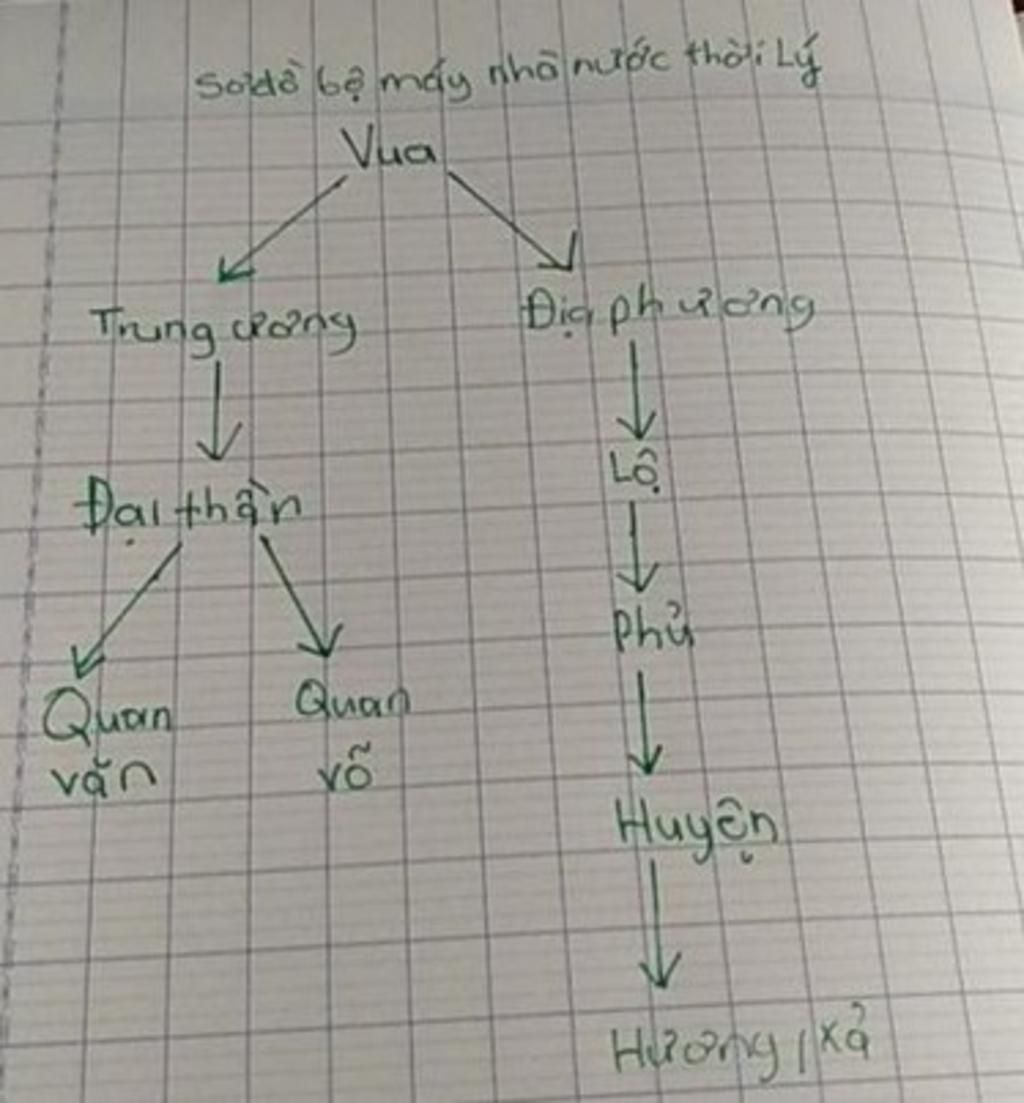 Sơ đồ bộ máy nhà nước thời Lý
Vua
Trung ương
Địa phương
Đại thần
Lộ
Phủ
Quan văn
Quan võ
Huyện
Hương, xả